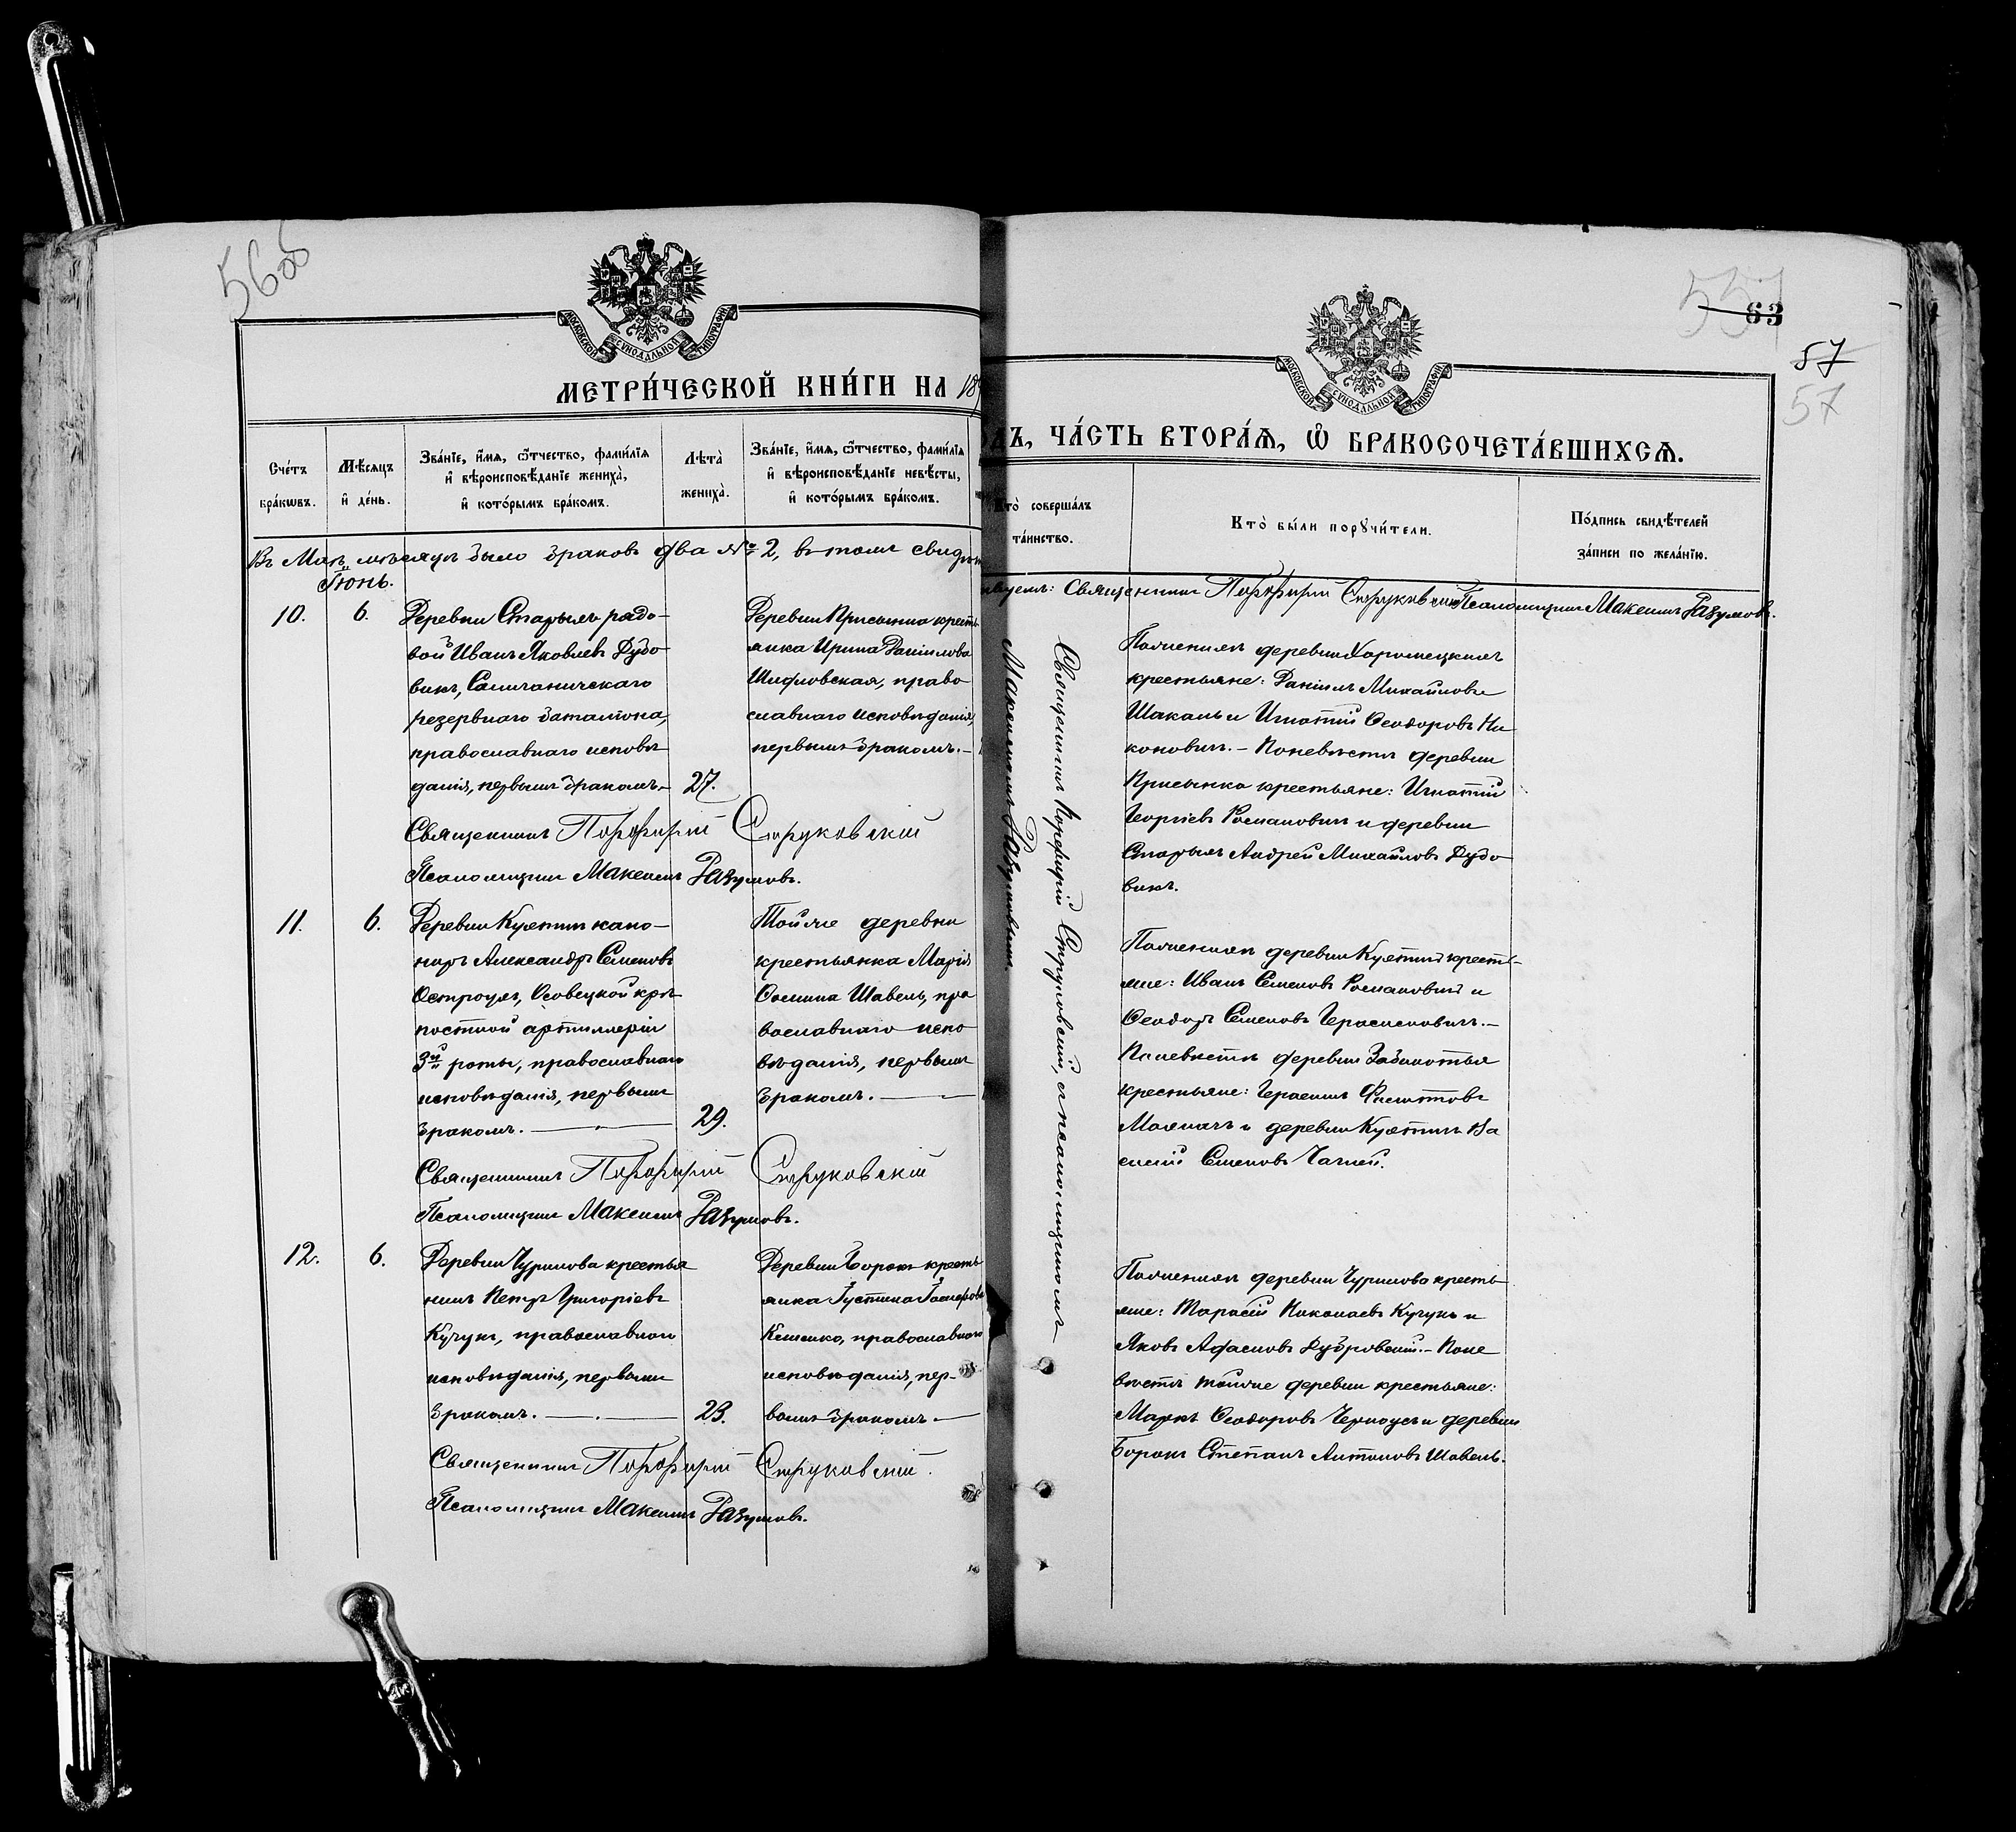 56об
МОСКОВСКОЙ СѴНОДАЛЬНОЙ ТИПОГРАФІИ
МЕТРИ́ЧЕСКОЙ КНИ́ГИ НА 189
Сче́тъ бра́кѡвъ.
Мѣ́сяцъ и҆ де́нь.
Зва́нїе, и҆́мя, ѻ҆́тчество, фами́лїя и҆ вѣроисповѣ́данїе жениха̀, и҆ кото́рымъ бра́комъ.
Лѣ́та жениха̀.
Зва́нїе, и҆́мя, ѻ҆́тчество, фами́лїя и҆ вѣроисповѣ́данїе невѣ́сты, и҆ кото́рымъ бра́комъ.
Въ Маѣ мѣсяцѣ было браковъ два № 2, въ томъ свидѣт
Іюнь.
10.
6.
Деревни Старыхъ рядо-
вой Иванъ Яковлевъ Дубо
викъ,
резервнаго баталіона,
православнаго исповѣ
данія, первымъ бракомъ.-
27.
Деревни Присынка кресть
янка Ирина Даніилова
Шидловская, право
славнаго исповѣданія,
первымъ бракомъ.-
Священникъ Порфирій Струковскій
Псаломщикъ Максимъ Разумовъ.
11.
6.
Деревни Кухтичъ кано-
ниръ Александръ Семеновъ
Остроухъ, Осовецкой крѣ
постной артиллеріи
3й роты, православнаго
исповѣданія, первымъ
бракомъ.
29.
Той же деревни
крестьянка Марія
Ѳомина Шавель, пра
вославнаго испо
вѣданія, первымъ
бракомъ.
Священникъ Порфирій Струковскій
Псаломщикъ Максимъ Разумовъ.
12.
6.
Деревни Чурилова крестья
нинъ Петръ Григоріевъ
Кучукъ, православнаго
исповѣданія, первымъ
бракомъ.
23.
Деревни Борокъ кресть
янка Іустина
православнаго
исповѣданія, пер-
вымъ бракомъ.
Священникъ Порфирій Струковскій.
Псаломщикъ Максимъ Разумовъ.
63
57
57
МОСКОВСКОЙ СѴНОДАЛЬНОЙ ТИПОГРАФІИ
ОДЪ, ЧА́СТЬ ВТОРА́Ѧ, Ѡ҆ БРАКОСОЧЕТА́ВШИХСѦ.
Кто̀ соверша́лъ та́инство.
Кто̀ бы́ли порꙋчи́тели.
По́дпись свидѣ́телей за́писи по жела́нїю.
Священникъ Порфирій Струковскій Псаломщикъ Максимъ Разумовъ.
Священникъ Порфирій Струковскій, съ псаломщикомъ
Максимомъ Разумовымъ.
По женихѣ деревни
крестьяне: Даніилъ Михайловъ
Шакаль и Игнатій Ѳеодоровъ Ни
коновичъ.- По невѣстѣ деревни
Присынка крестьяне: Игнатій
Георгіевъ Романовичъ и деревни
Старыхъ Андрей Михайловъ Дубо
викъ.
По женихѣ деревни Кухтичъ кресть-
яне: Иванъ Семеновъ Романовичъ и
Ѳеодоръ Семеновъ Герасимовичъ.-
По невѣстѣ деревни Заболотья
крестьяне: Герасимъ
и деревни Кухтичъ Ва
силій Семеновъ
По женихѣ деревни Чурилова кресть
яне: Тарасій Николаевъ Кучукъ и
Яковъ Афанасовъ Дубровскій.- По не
вѣстѣ той же деревни крестьяне:
Маркъ Ѳеодоровъ Черноусъ и деревни
Борокъ Степанъ Антоновъ Шавель.